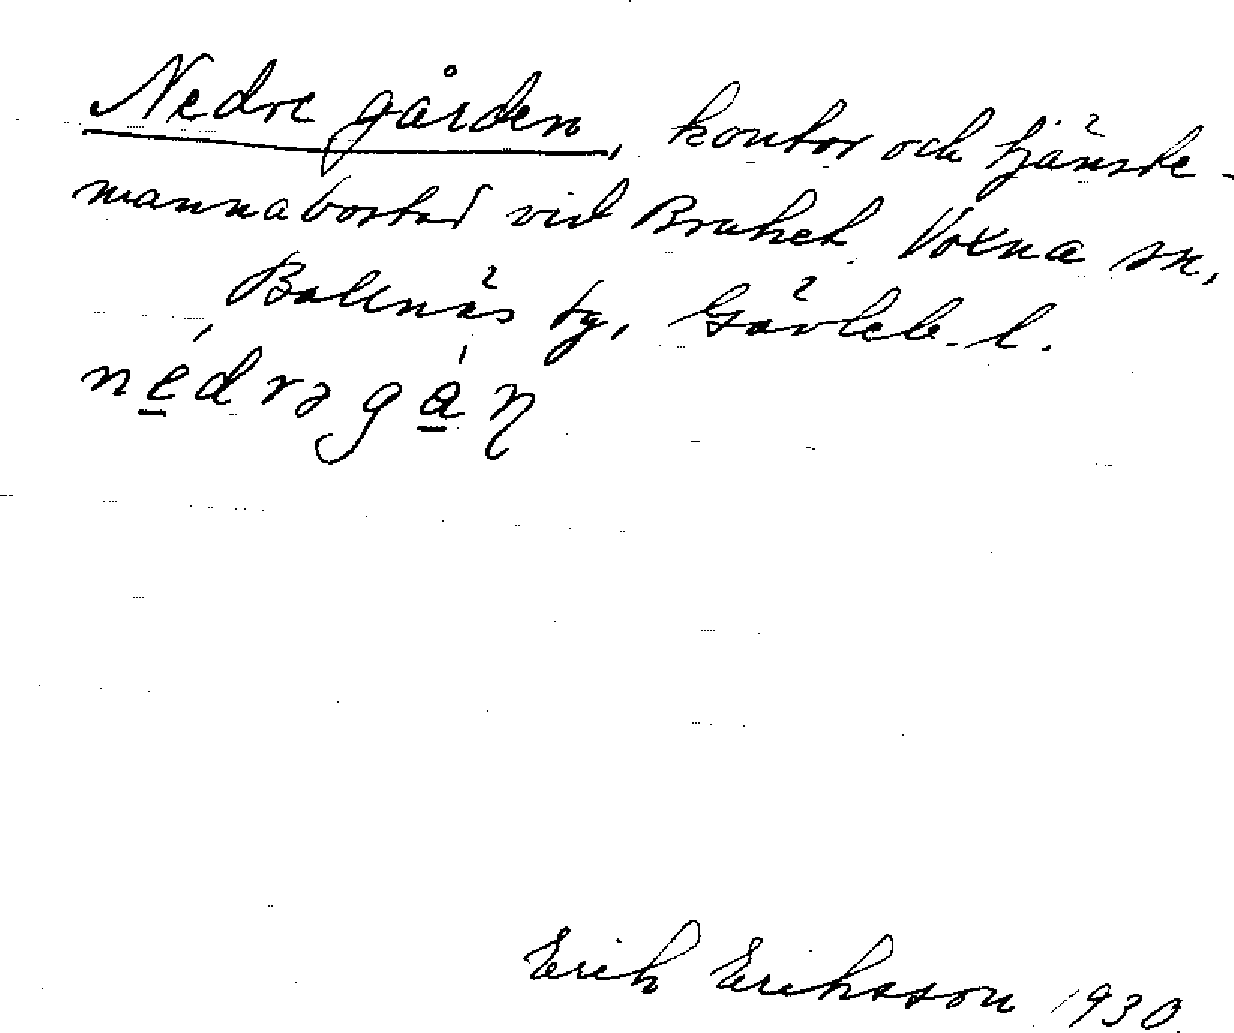 Nedre gården, kontor och tjänste-
mannabostad vid Bruket, Voxna sn,
Bollnäs tg, Gävleb. l.
nédrəgán
Erik Eriksson 1930